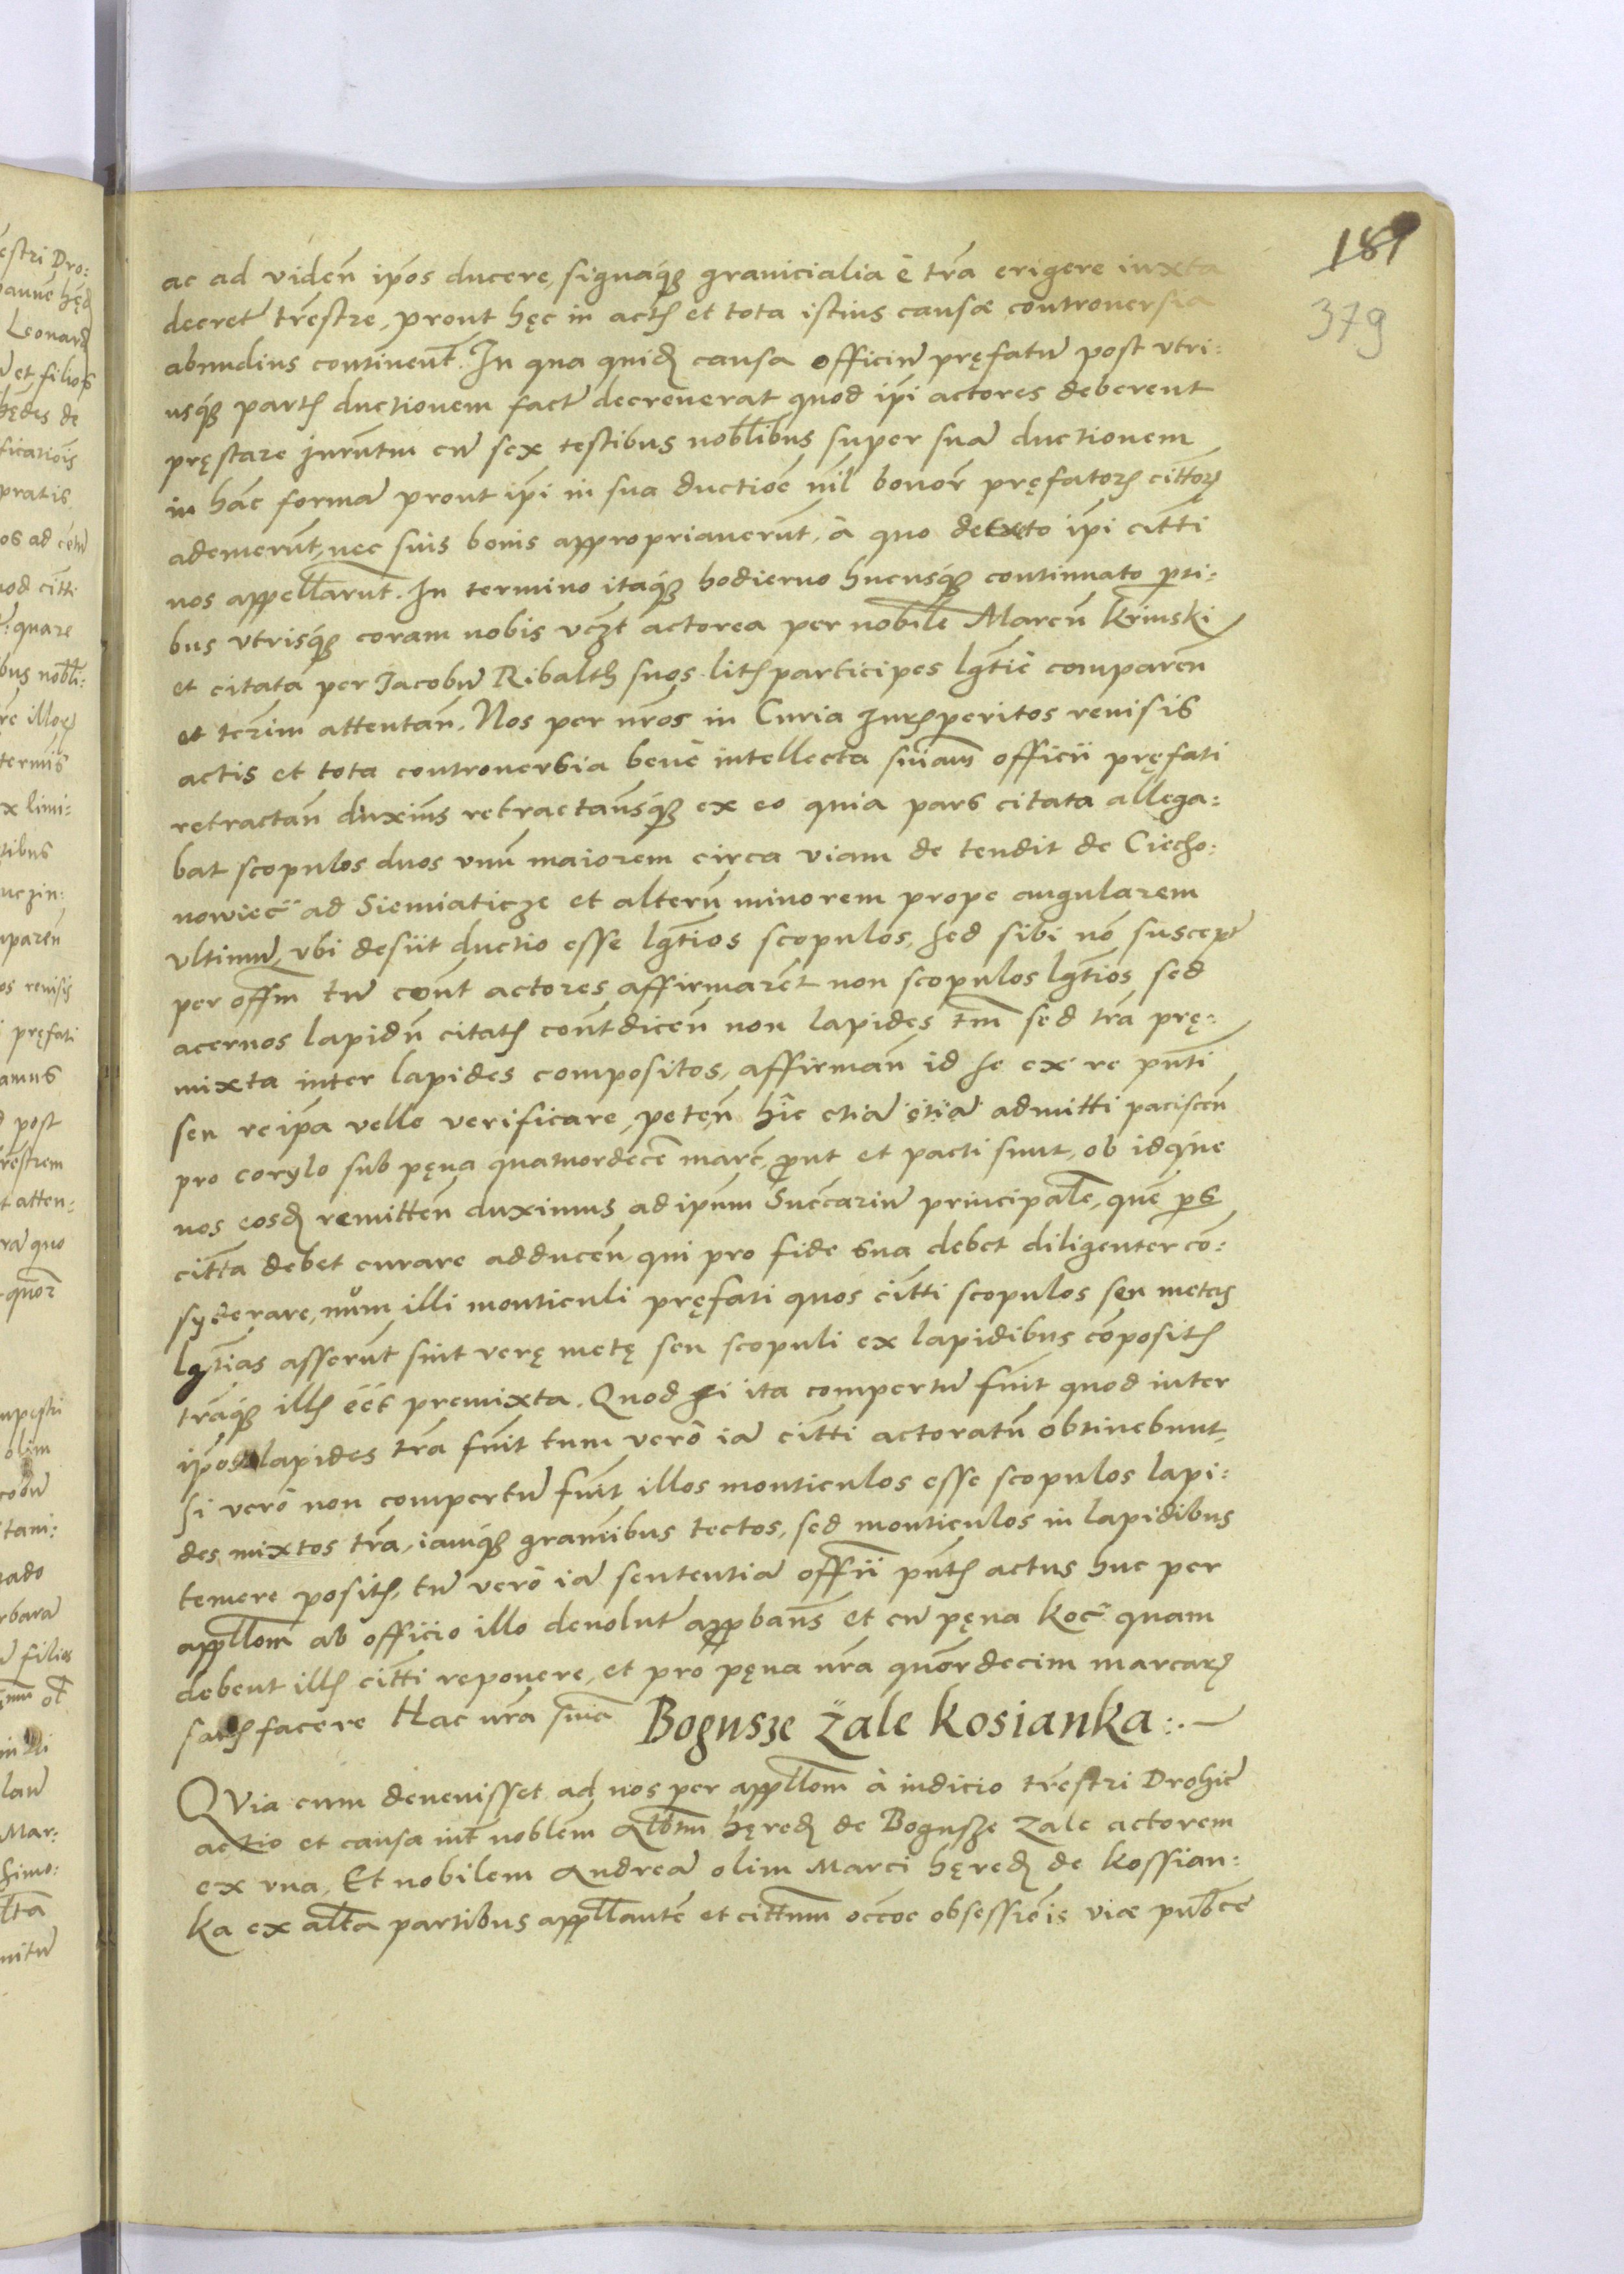 189
379
ac ad videñ ip̃os ducere, signaq́ꝫ granicialia è tr̃a erigere iuxta
decret̃ tr̃estre, prout hęc in actis et tota istius causæ controuersia
abundius continent̃. In qua quidẽ causa officiũ pręfatũ post vtri:
usq́ꝫ partis ductionem fact̃ decreuerat quod ip̃i actores deberent
pręstare Jurñtm cũ sex testibus nobl̃ibus super suã ductionem
in hãc formã prout ip̃i in sua ductiõe nil̃ bonor̃ pręfatorꝝ cittorꝝ
ademerũt, nec suis bonis appropriauerũt, à quo decreto ip̃i citti
nos appellarũt. In termino itaq́ꝫ hodierno hucusq́ꝫ continuato p̱ti:
bus vtrisq́ꝫ coram nobis vcꝫt actorea per nobilẽ Marcũ Krinski
et citata per Jacobũ Ribalth suos litis participes lgt̃iẽ compareñ
et ter̃im attentañ. Nos per nr̃os in Curia Jurisperitos reuisis
actis et tota controuersia benè intellecta sñiam officii pręfati
retractañ duxim̃s retractam̃sq́ꝫ ex eo quia pars citata allega:
bat scopulos duos vnũ maiorem circa viam de tendit de Ciecho:
nowiec̃ ad Siemiaticze et alterũ minorem prope angularem
vltimũ, vbi desiit ductio esse lgt̃ios scopulos, sed sibi nõ suscept̃
per offm̃ tũ cont̃ actores affirmarẽt non scopulos lgt̃ios sed
aceruos lapidũ citatis cont̃diceñ non lapides tm̃ sed tr̃a prę:
mixta inter lapides compositos, affirmañ id se ex re pñti
seu reip̃a velle verificare, peteñ hĩc etiã etiã admitti pacisceñ
pro corylo sub pęna quatuordecẽ marc̃, prout et pacti sunt, ob idq́ue
nos eosdẽ remitteñ duximus ad ip̃um Succariũ principalẽ, quẽ p̱s
citta debet curare adduceñ, qui pro fide sua debet diligenter cõ:
syderare, nũm illi monticuli pręfati quos citti scopulos seu metas
lgt̃ias asserũt sint verę metę seu scopuli ex lapidibus cõpositis
tr̃aq́ꝫ illis ẽẽs premixta. Quod si ita compertũ fũit quod inter
ip̃os lapides tr̃a fũit tum verò iã citti actoratũ obtinebunt,
si verò non compertũ fũit illos monticulos esse scopulos lapi:
des mixtos tr̃a, iamq́ꝫ gramĩbus tectos, sed monticulos in lapidibus
temere positis, tũ verò iã sententiã offii pñtis actus huc per
appllom̃ ab officio illo deuolut̃ approbam̃s et cũ pęna koc̃ quam
debent illis citti reponere, et pro pęna nr̃a quordecim marcarꝝ
satisfacere Hac nr̃a sñia Bogusze Zale Kosianka :.—
QVia cum deuenisset ad nos per appllom̃ à iudicio tr̃estri Drohic̃
actio et causa int̃ noblẽm Albtm̃ hęredẽ de Bogusze Zale actorem
ex vna, Et nobilem Andreã olim Marci hęredẽ de Kossian:
ka ex alt̃a partibus appllantẽ et cittum occõe obsessiõis viæ publcẽ